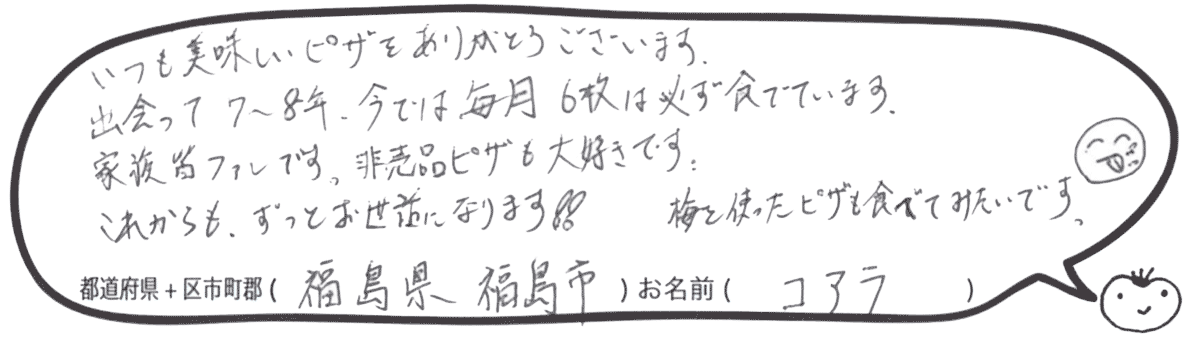 いつも美味しいピザをありがとうございます。
出会って7〜8年、今では毎月6枚は必ず食べています。
家族皆ファンです。非売品ピザも大好きです。
これからも、ずっとお世話になります!!
梅を使ったピザも食べてみたいです。
都道府県+区市町郡(福島県 福島市)お名前(コアラ)